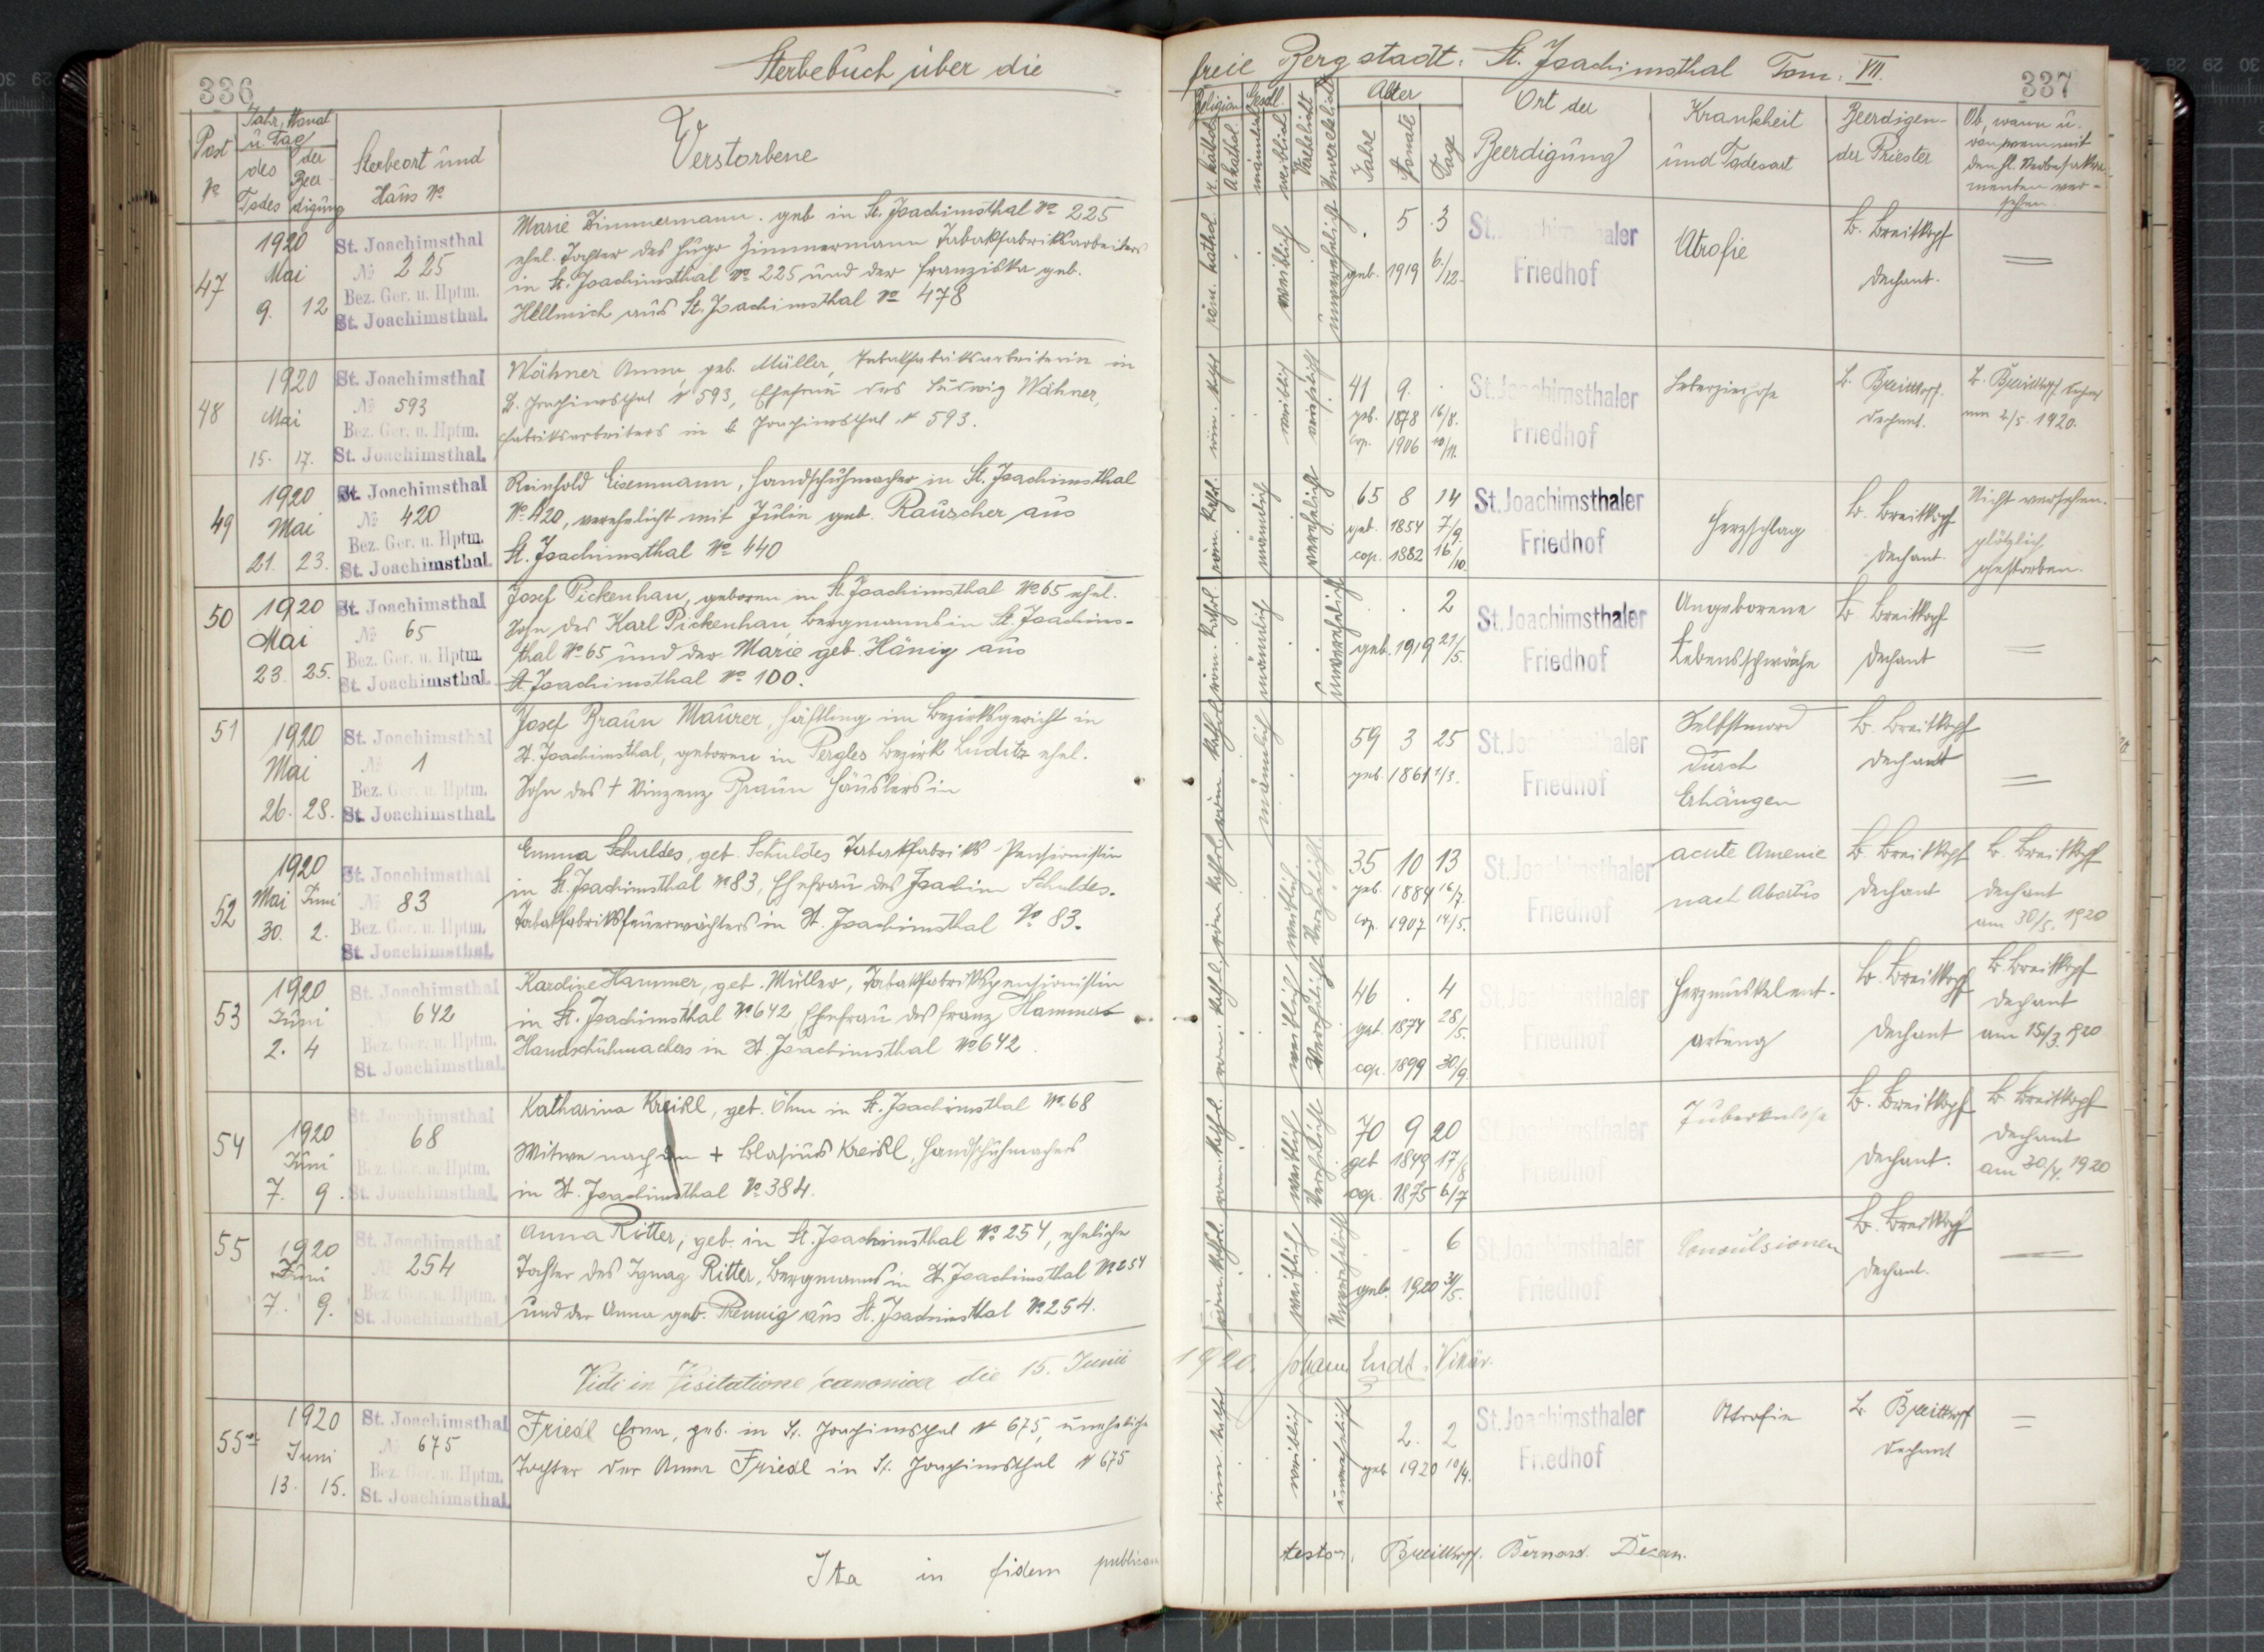 336
Sterbebuch über die
Post
No
Jahr, Monat
u. Tag
des
Todes
der
Beer-
digung
Sterbeort und
Haus No
Verstorbene
47
1920
Mai
9. 12
St. Joachimsthal
No 225
Bez. Ger. u. Hptm.
St. Joachimsthal.
Marie Zimmermann. geb. in St. Joachimsthal No 225
ehel. Tochter des Hugo Zimmermann Tabakfabriksarbeiters
in St. Joachimsthal No 225 und der Franziska geb.
Hellmich aus St. Joachimsthal No 478
48
1920
Mai
15. 17.
St. Joachimsthal
No 593
Bez. Ger. u. Hptm.
St. Joachimsthal.
Wähner Anna, geb. Müller, Tabakfabriksarbeiterin in
St. Joachimsthal No 593, Ehefrau des Ludwig Wähner,
Fabriksarbeiters in St. Joachimsthal No 593.
49
1920
Mai
21. 23.
St. Joachimsthal
No 420
Bez. Ger. u. Hptm.
St. Joachimsthal.
Reinhold Eisenmann, Handschuhmacher in St. Joachimsthal
No 420, verehelicht mit Julie geb. Rauscher aus
St. Joachimsthal No 440
50
1920
Mai
23. 25.
St. Joachimsthal
No 65
Bez. Ger. u. Hptm.
St. Joachimsthal.
Josef Pickenhan, geboren in St. Joachimsthal No 65 ehel.
Sohn des Karl Pickenhan, Bergmanns in St. Joachims-
thal No 65 und der Marie geb. Hänig aus
St. Joachimsthal No 100.
51
1920
Mai
26. 28.
St. Joachimsthal
No 1
Bez. Ger. u. Hptm.
St. Joachimsthal.
Josef Braun Maurer, Häftling im Bezirksgericht in
St. Joachimsthal, geboren in Pergles Bezirk Luditz ehel.
Sohn des + Vinzenz Braun Häuslers in
52
1920
Mai Juni
30. 2.
St. Joachimsthal
No 83
Bez. Ger. u. Hptm.
St. Joachimsthal.
Emma Schuldes, geb. Schuldes Tabakfabriks-Pensionistin
in St. Joachimsthal No 83, Ehefrau des Joachim Schuldes.
Tabakfabriksfeuerwächters in St. Joachimsthal No 83.
53
1920
Juni
2. 4
St. Joachimsthal
642
Bez. Ger. u. Hptm.
St. Joachimsthal.
Karoline Hammer, geb. Müller, Tabakfabrikspensionistin
in St. Joachimsthal No 642 Ehefrau des Franz Hammer
Handschuhmachers in St. Joachimsthal No 642
54
1920
Juni
7. 9.
St. Joachimsthal
68
Bez. Ger. u. Hptm.
St. Joachimsthal.
Katharina Kreißl, geb. Öhm in St. Joachimsthal No 68
Witwe nach dem + Blasius Kreißl, Handschuhmachers
in St. Joachimsthal No 384.
55
1920
Juni
7. 9.
St. Joachimsthal
No 254
Bez. Ger. u. Hptm.
St. Joachimsthal.
Anna Ritter, geb. in St. Joachimsthal No 254, eheliche
Tochter des Ignaz Ritter, Bergmanns in St. Joachimsthal No 254
und der Anna geb. aus St. Joachimsthal No 254.
Vidi in Visitatione canonica die 15. Junii
55
1920
Juni
13. 15.
St. Joachimsthal
No 675
Bez. Ger. u. Hptm.
St. Joachimsthal.
Friedl Erna, geb. in St. Joachimsthal No 675, uneheliche
Tochter der Anna Friedl in St. Joachimsthal No 675
Ita in fidem publicam
freie Bergstadt: St. Joachimsthal Tom: VII.
337
Religion
r. kathol.
Akathol.
Geschl.
männlich
weiblich
Verehelicht
Unverehelicht
Alter
Jahre
Monate
Tage
Ort der
Beerdigung
Krankheit
und Todesart
Beerdigen-
der Priester
Ob, wann u.
von wem mit
den hl. Sterbesakra-
menten ver-
sehen
röm. kathol.
weiblich
unverehelicht
. 5 .3
geb. 1919 6./12.
St. Joachimsthaler
Friedhof
Atrofie
B. Breitkopf
Dechant.
röm. kathol.
weiblich
verehelicht
41 9. .
geb. 1878 16/8.
cop. 1906 10/11.
St. Joachimsthaler
Friedhof
B. Breitkopf.
Dechant.
B. Breitkopf Dechant
am 2/5. 1920.
röm. kathol.
männlich
verehelicht
65 8 14
geb. 1854 7/9.
cop. 1882 16/10.
St. Joachimsthaler
Friedhof
Herzschlag
B. Breitkopf
Dechant.
Nicht versehen.
plötzlich
gestorben.
röm. kathol.
männlich
Unverehelicht
. . 2
geb. 1919 21/5.
St. Joachimsthaler
Friedhof
Angeborene
Lebensschwäche
B. Breitkopf
Dechant
röm. kathol.
männlich
59 3 25
geb. 1861 1/3.
St. Joachimsthaler
Friedhof
Selbstmord
durch
Erhängen
B. Breitkopf
Dechant
röm. kathol.
weiblich
Verehelicht
35 10 13
geb. 1884 16/7.
cop. 1907 14/5.
St. Joachimsthaler
Friedhof
acute Amenie
nach Abortus
B. Breitkopf
Dechant
B. Breitkopf
Dechant
am 30/5. 1920
röm. kathol.
weiblich
Verehelicht
46 . 4
geb. 1874 28/5.
cop. 1899 30/9.
St. Joachimsthaler
Friedhof
Herzmuskelent-
artung
B. Breitkopf
Dechant
B. Breitkopf
Dechant
am 15/3. 1920
röm. kathol.
weiblich
Verehelicht
70 9 20
geb. 1849 17/8
cop. 1875 6/7
St. Joachimsthaler
Friedhof
Tuberkulose
B. Breitkopf
Dechant.
B. Breitkopf
Dechant
am 30/4. 1920
röm. kathol.
weiblich
Unverehelicht
. . 6
geb. 1920 31/5.
St. Joachimsthaler
Friedhof
Convulsionen
B. Breitkopf
Dechant.
1920. Johann Lndt. Vikär.
röm. kathol.
weiblich
unverehelicht
2. 2
geb. 1920 10/4.
St. Joachimsthaler
Friedhof
Atrofie
B. Breitkopf
Dechant
testor. Breitkopf. Bernard. Dean.